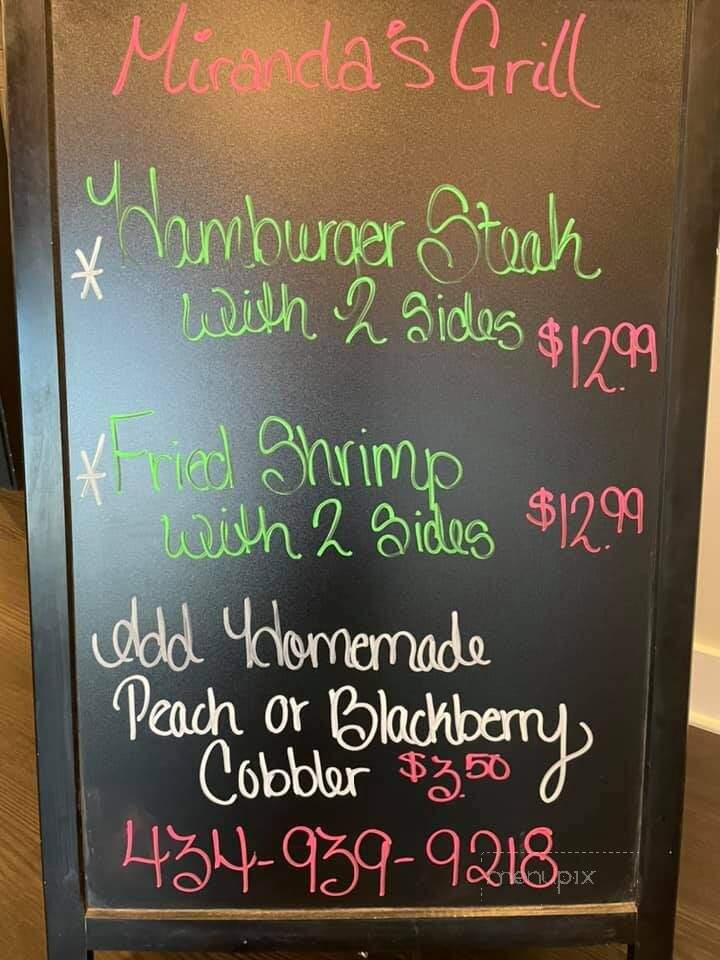 Miranda's Grill
* Hamburger Steak
with 2 Sides $12.99
* Fried Shrimp
with 2 Sides $12.99
Add Homemade
Peach or Blackberry
Cobbler $3.50
434-939-9218
menupix